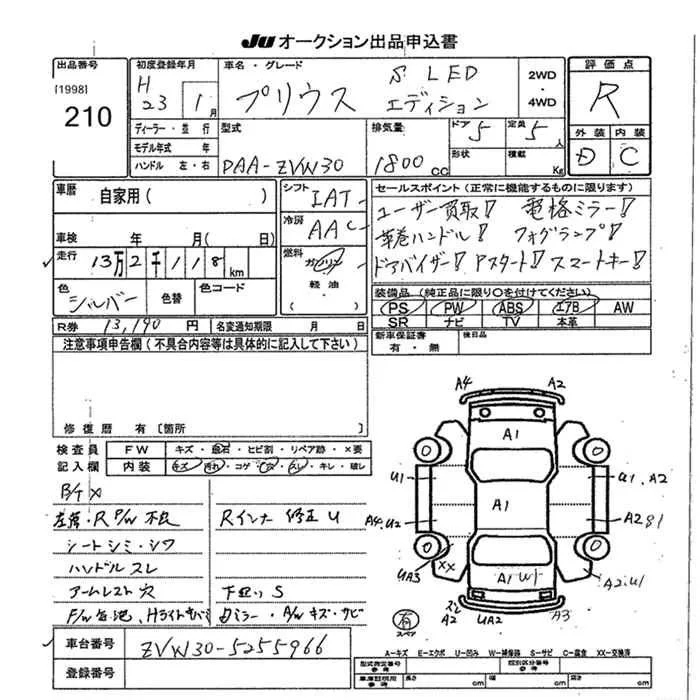 JU オークション出品申込書
出品番号
[1998]
210
初度登録年月
H
23 1 月
車名・グレード
プリウス
S LED
エディション
2WD
・
4WD
評価点
R
外装 内装
D C
ディーラー・並行
モデル年式 年
ハンドル 左・右
型式
DAA-ZVW30
排気量
1800 cc
ドア 5
定員 5 人
形状
積載 Kg
車歴
自家用( )
シフト IAT
冷房 AAC
燃料 ガソリン
軽油
セールスポイント(正常に機能するものに限ります)
ユーザー買取! 電格ミラー!
革巻ハンドル! フォグランプ!
ドアバイザー! Pスタート! スマートキー!
車検 年 月( 日)
走行 13万2千118 km
色 シルバー
色替
色コード
装備品(純正品に限り○を付けてください)
PS PW ABS エアB AW
SR ナビ TV 本革
R券 13,190 円
名変通知期限 月 日
新車保証書
有・無
後日品
注意事項申告欄(不具合内容等は具体的に記入して下さい)
修復歴 有[箇所
検査員
記入欄
FW キズ・飛石・ヒビ割・リペア跡・×要
内装 キズ・汚れ・コゲ・穴・スレ・キレ・破レ
B/T ×
R P/W 不良
Rインナー修正U
シートシミ・シワ
ハンドルスレ
アームレスト穴
下廻りS
ミラー・A/Wキズ・サビ
車台番号 ZVW30-5255966
登録番号
A4 A2
A1
U1
U1. A2
A1
A4.U2
A2
UA3
XX
A1 W
A2.U1
スレ
A2
UA2
A3
有
スペア
A-キズ E-エクボ U-凹み W-補修跡 S-サビ C-腐食 XX-交換済
型式指定番号
参考
類別区分番号
参考
車庫証明用
参考
長さ cm
幅 cm
高さ cm